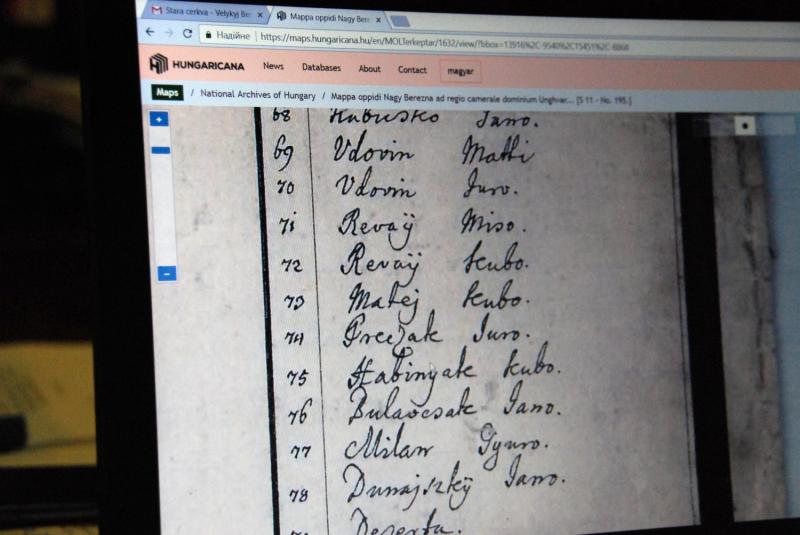 Stara cerkva - Velykyj Ber × Mappa oppidi Nagy Bere ×
Надійне https://maps.hungaricana.hu/en/MOLTerkeptar/1632/view/?bbox=13916%2C-9540%2C15451%2C-8868
HUNGARICANA News Databases About Contact magyar
Maps / National Archives of Hungary / Mappa oppidi Nagy Berezna ad regio camerale dominium Unghvar... [S 11 - No. 195.]
68 Hubusko Jano.
69 Vdovin Matti
70 Vdovin Juro.
71 Revaÿ Miso.
72 Revaÿ Kubo.
73 Matej Kubo.
74 Juro.
75 Habinyak Kubo.
76 Bulavcsak Jano.
77 Milan Gyuro.
78 Dunajszkÿ Jano.
Deserta.